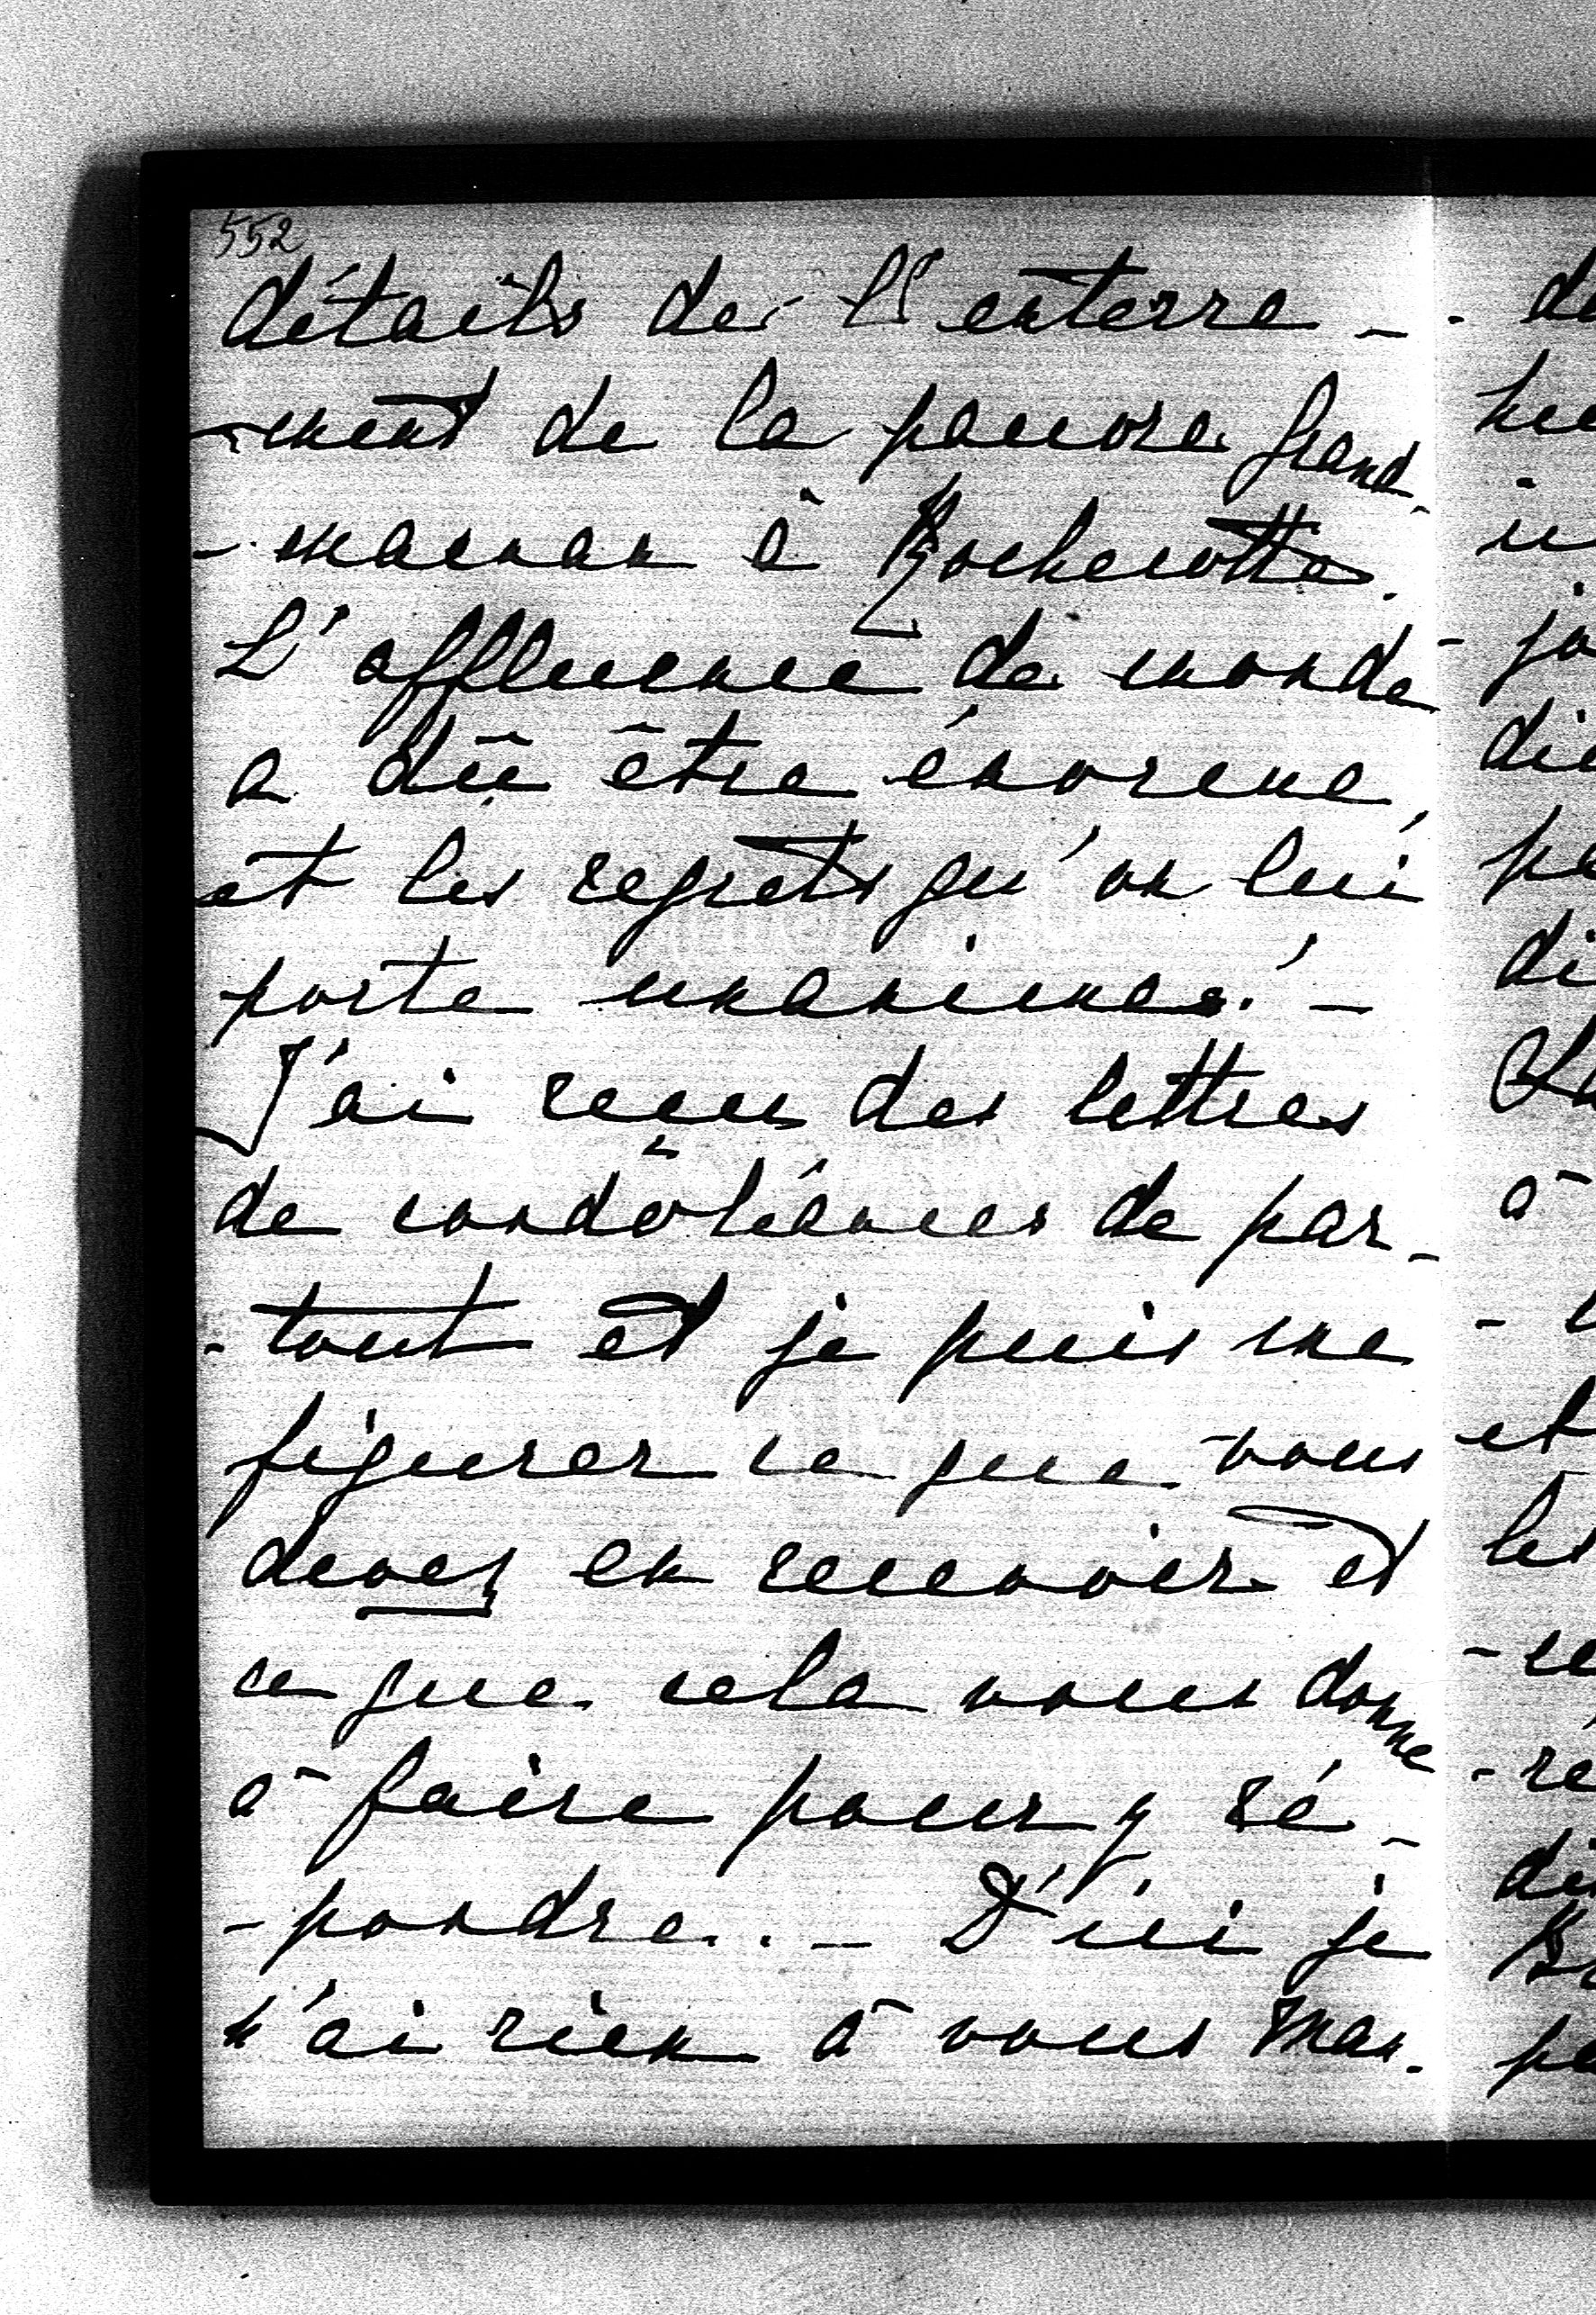 552
détails de l'enterre-
-ment de la pauvre Grand-
-maman à Rochecotte.
L'affluence de monde
a dû être énorme,
et les regrets qu'on lui
porte unanimes! -
J'ai reçu des lettres
de condoléances de par-
-tout et je puis me
figurer ce que vous
devez en recevoir et
ce que cela vous donne
à faire pour y ré-
-pondre.. - D'ici je
n'ai rien à vous man-